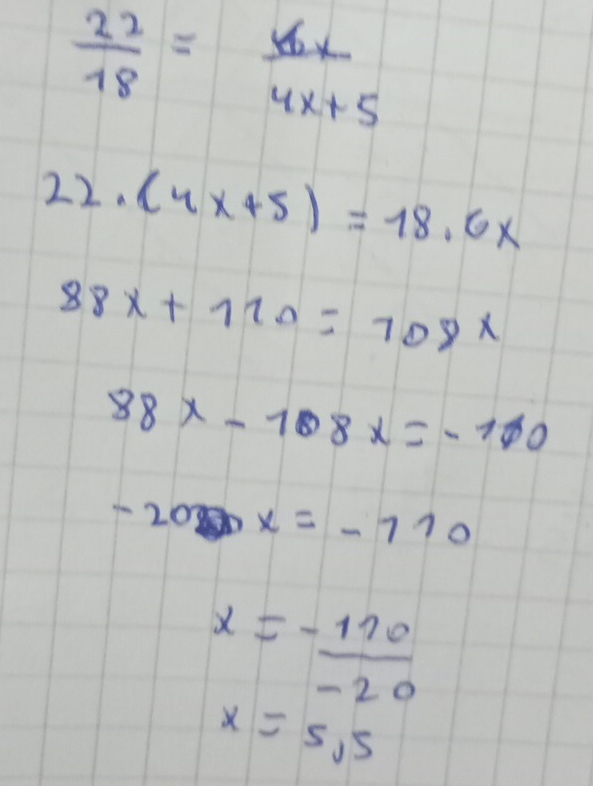 22/18 = 6x/4x+5
22.(4x+5) = 18.6x
88x + 110 = 108x
88x - 108x = -110
-20x = -110
x = -110/-20
x = 5,5